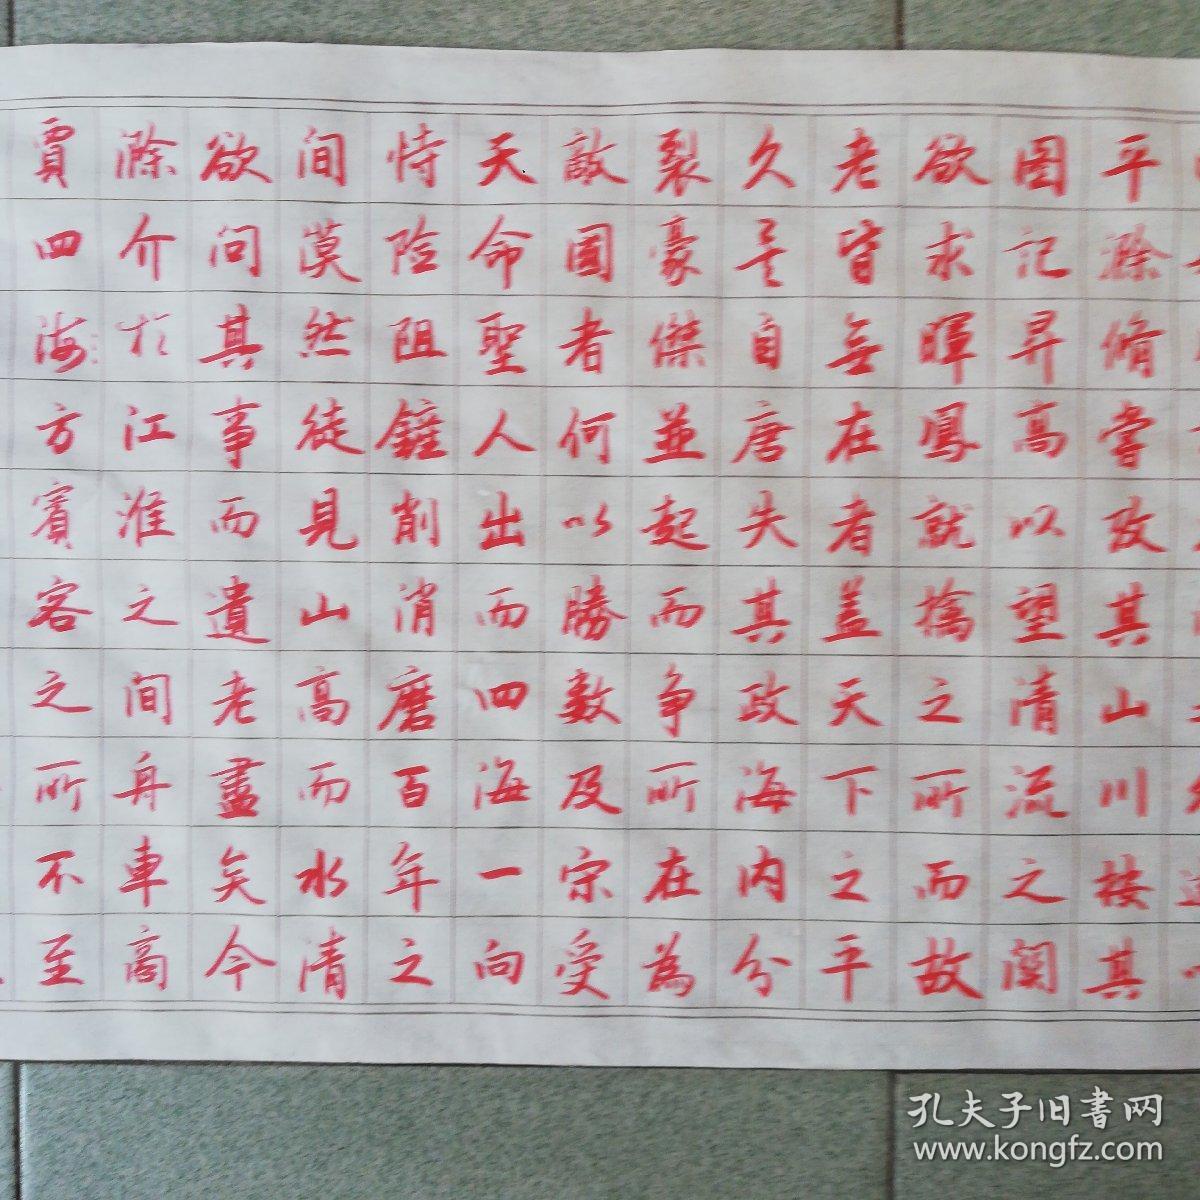 平滁脩嘗攷其山川按其
图記昇高以望清流之関
欲求暉鳳就擒之所而故
老皆無在者盖天下之平
久矣自唐失其政海内分
裂豪傑並起而争所在為
敵國者何以勝數及宋受
天命聖人出而四海一向
恃险阻鏟削消磨百年之
间漠然徒見山高而水清
欲问其事而遺老盡矣今
滁介於江淮之间舟車商
賈四海方賓客之所不至
孔夫子旧書网
www.kongfz.com